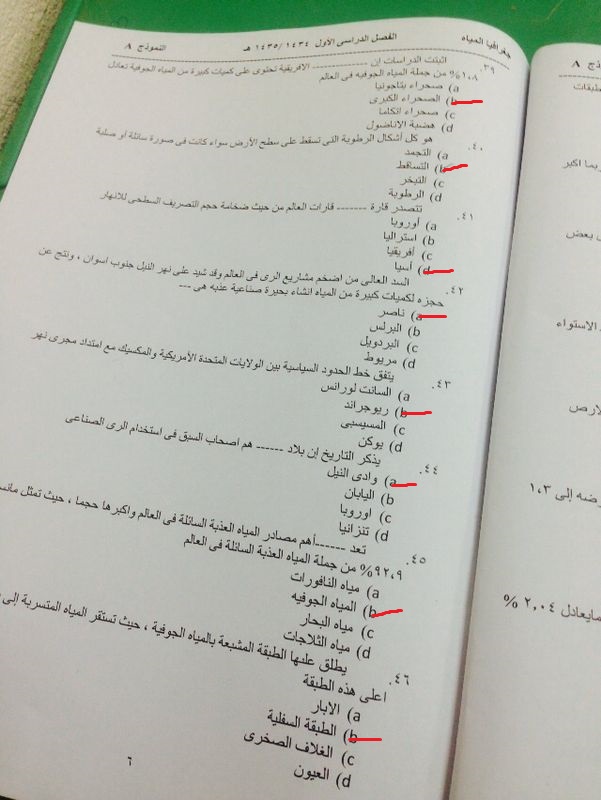 جغرافيا المياه الفصل الدراسى الأول ١٤٣٤ /١٤٣٥ هـ النموذج A
٣٩. اثبتت الدراسات إن ـــــــــــــ الافريقية تحتوى على كميات كبيرة من المياه الجوفية تعادل
١،٨% من جملة المياه الجوفيه فى العالم
a) صحراء بتاجونيا
b) الصحراء الكبرى
c) صحراء اتكاما
d) هضبة الاناضول
٤٠. هو كل أشكال الرطوبة التى تسقط على سطح الأرض سواء كانت فى صورة سائلة أو صلبة
a) التجمد
b) التساقط
c) التبخر
d) الرطوبة
٤١. تتصدر قارة ------- قارات العالم من حيث ضخامة حجم التصريف السطحى للانهار
a) أوروبا
b) استراليا
c) أفريقيا
d) أسيا
٤٢. السد العالى من اضخم مشاريع الرى فى العالم وقد شيد على نهر النيل جنوب اسوان ، ونتج عن
حجزه لكميات كبيرة من المياه انشاء بحيرة صناعية عذبه هى ---
a) ناصر
b) البرلس
c) البردويل
d) مريوط
٤٣. يتفق خط الحدود السياسية بين الولايات المتحدة الأمريكية والمكسيك مع امتداد مجرى نهر
a) السانت لورانس
b) ريوجراند
c) المسيسبى
d) يوكن
٤٤. يذكر التاريخ إن بلاد ------ هم اصحاب السبق فى استخدام الرى الصناعى
a) وادى النيل
b) اليابان
c) اوروبا
d) تنزانيا
٤٥. تعد ------أهم مصادر المياه العذبة السائلة فى العالم واكبرها حجما ، حيث تمثل
٩٢،٩% من جملة المياه العذبة السائلة فى العالم
a) مياه النافورات
b) المياه الجوفيه
c) مياه البحار
d) مياه الثلاجات
٤٦. يطلق عليها الطبقة المشبعة بالمياه الجوفية ، حيث تستقر المياه المتسربة إلى
اعلى هذه الطبقة
a) الابار
b) الطبقة السفلية
c) الغلاف الصخرى
d) العيون
٦
A
طبقات
بما اكبر
بعض
الاستواء
رضه إلى ١،٣
مايعادل ٢،٠٤ %